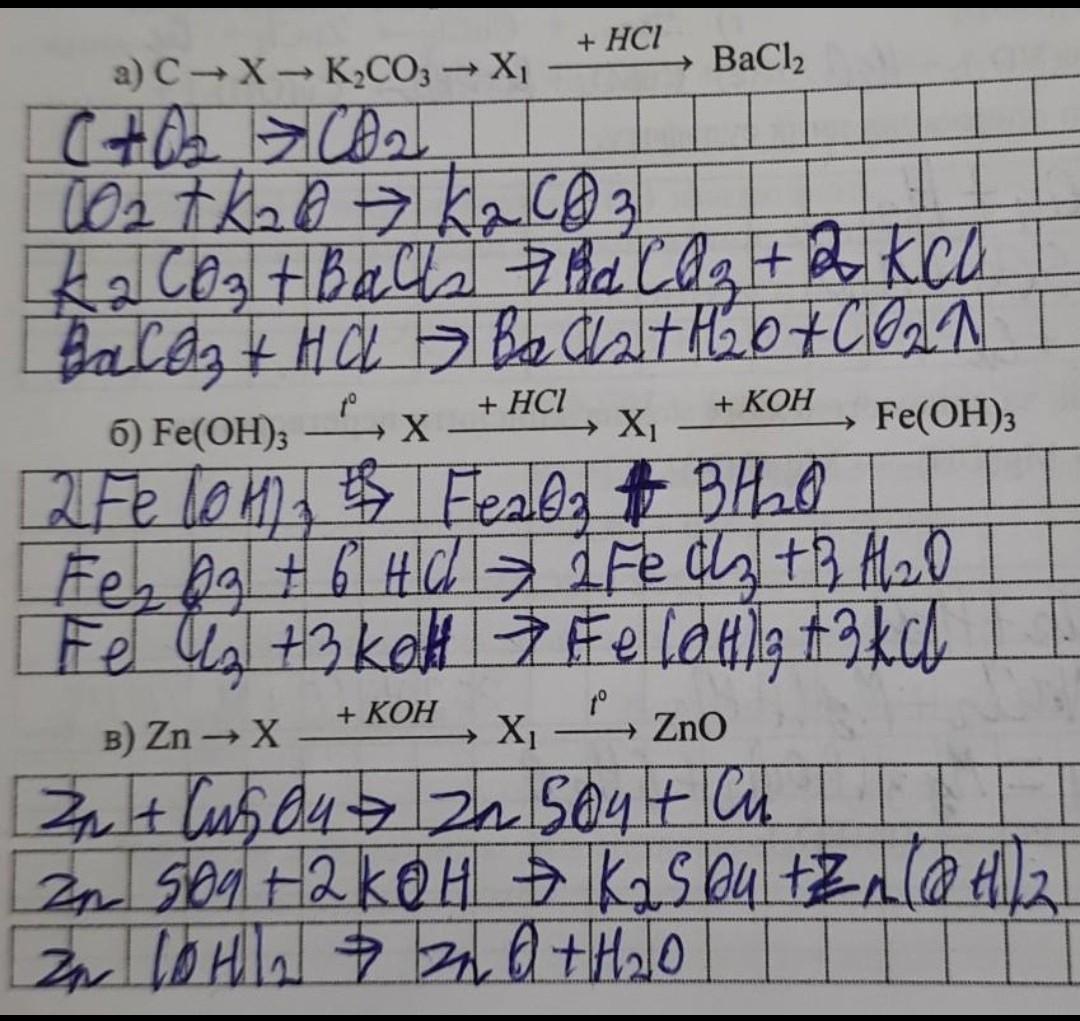 а) C → X → K₂CO₃ → X₁ + HCl → BaCl₂
C + O₂ → CO₂
CO₂ + K₂O → K₂CO₃
K₂CO₃ + BaCl₂ → BaCO₃ + 2 KCl
BaCO₃ + HCl → BaCl₂ + H₂O + CO₂↑
б) Fe(OH)₃ t° → X + HCl → X₁ + KOH → Fe(OH)₃
2Fe(OH)₃ t° → Fe₂O₃ + 3H₂O
Fe₂O₃ + 6 HCl → 2FeCl₃ + 3 H₂O
FeCl₃ + 3KOH → Fe(OH)₃ + 3KCl
в) Zn → X + KOH → X₁ t° → ZnO
Zn + CuSO₄ → ZnSO₄ + Cu
ZnSO₄ + 2KOH → K₂SO₄ + Zn(OH)₂
Zn(OH)₂ → ZnO + H₂O